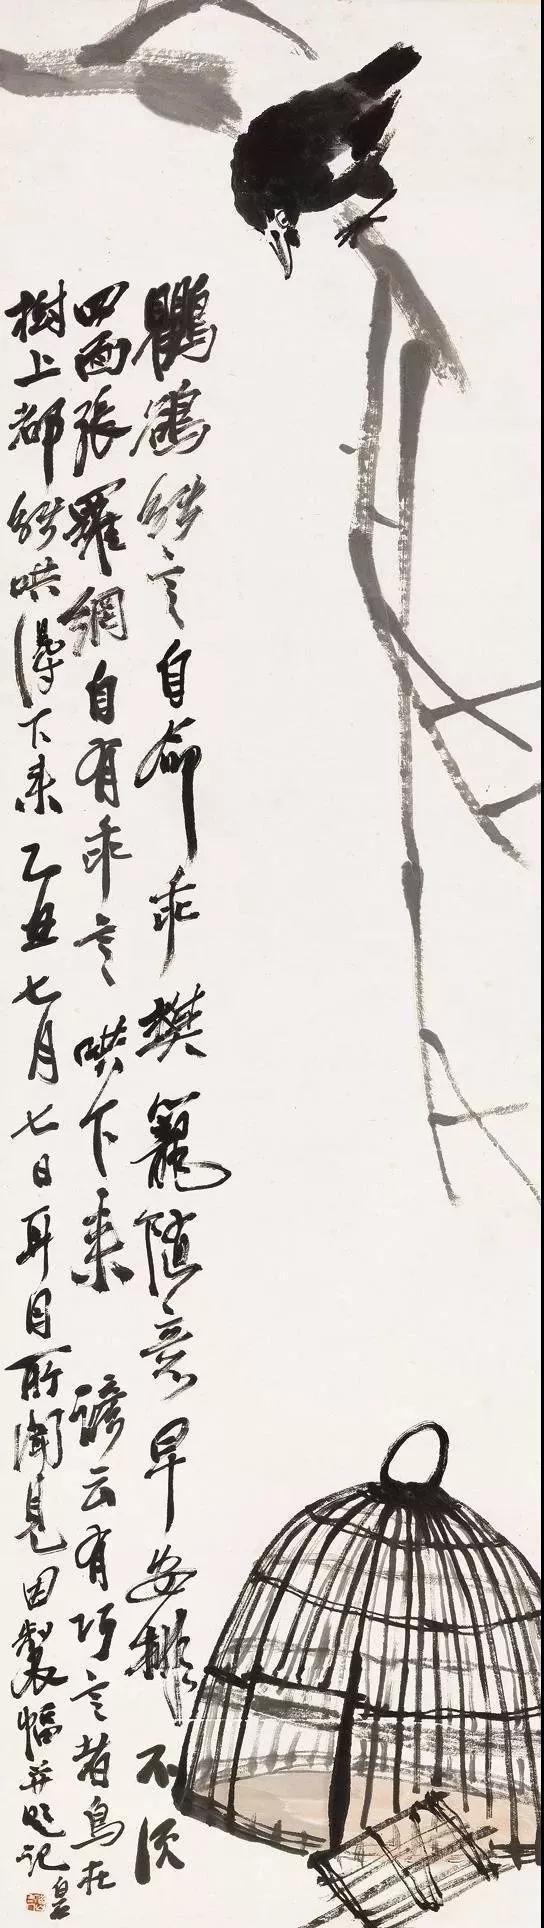 鸜鵒能言自命乖樊籠隨意早安排不須
四面張羅網自有乖言哄下來 諺云有巧言者鳥在
樹上都能哄得下來乙丑七月七日耳目所聞見因製幅并題記皇